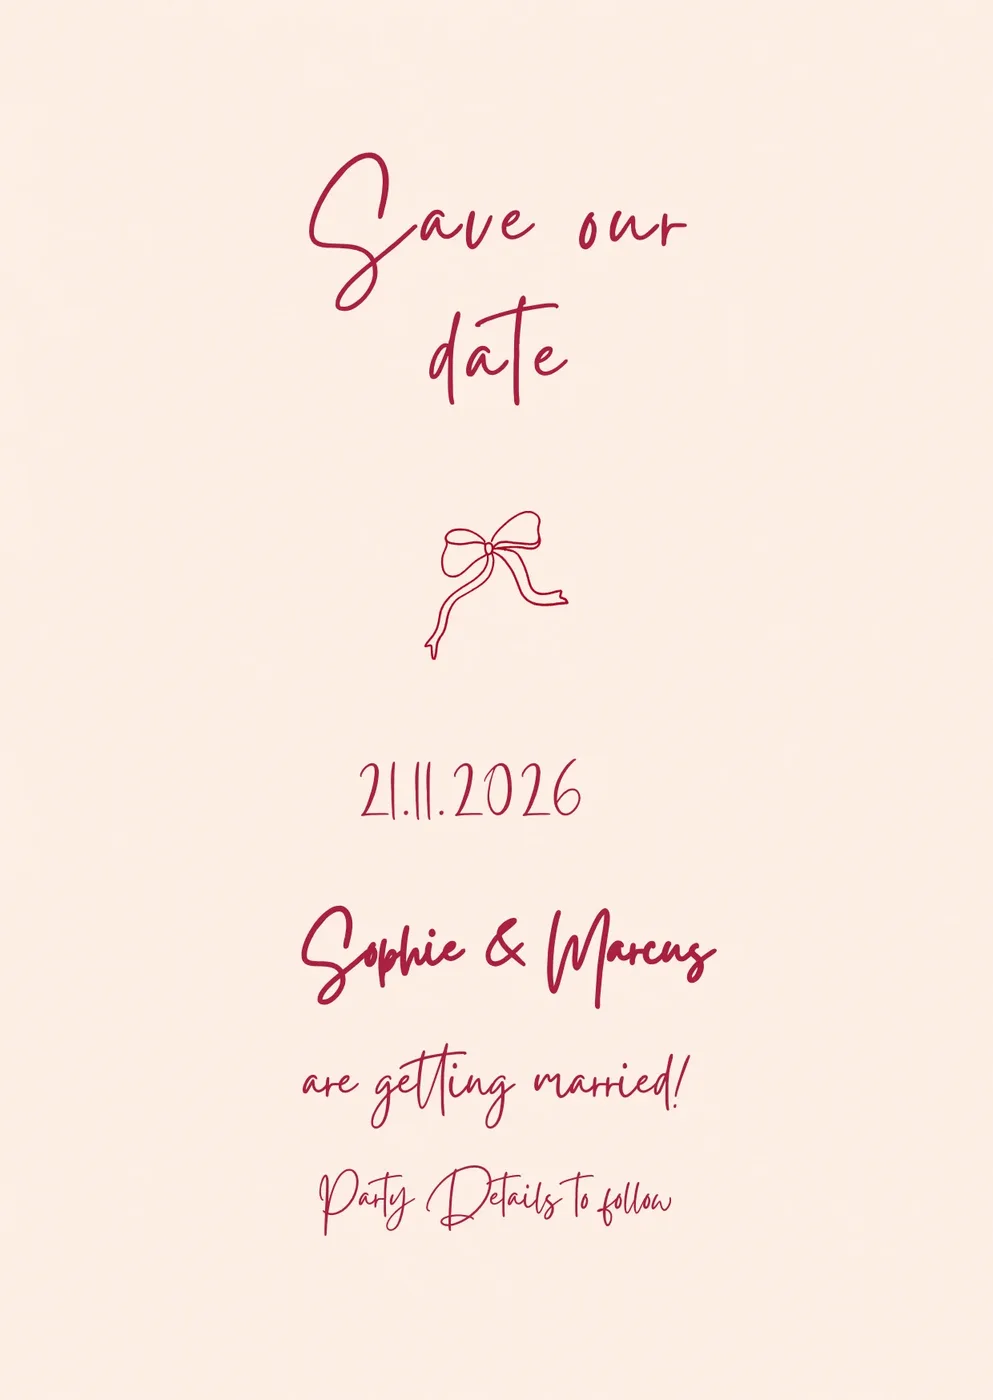 Save our
date
21.11.2026
Sophie & Marcus
are getting married!
Party Details to follow